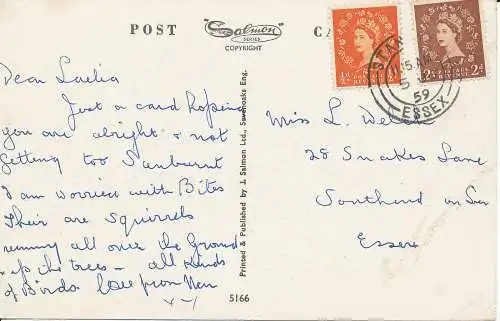 POST
"Salmon"
SERIES
COPYRIGHT
CA
Dear Laelia
Just a card hoping
you are alright & not
getting too Sunburnt
I am worried with Bites
Their are Squirrels
running all over the Ground
& up the trees - all Kinds
of Birds. love from Nan
x - y
Printed & Published by J. Salmon Ltd., Sevenoaks Eng.
5166
Miss L.
28 Snakes Lane
Southend on Sea
Essex
59
ESSEX
½d
2d 2d